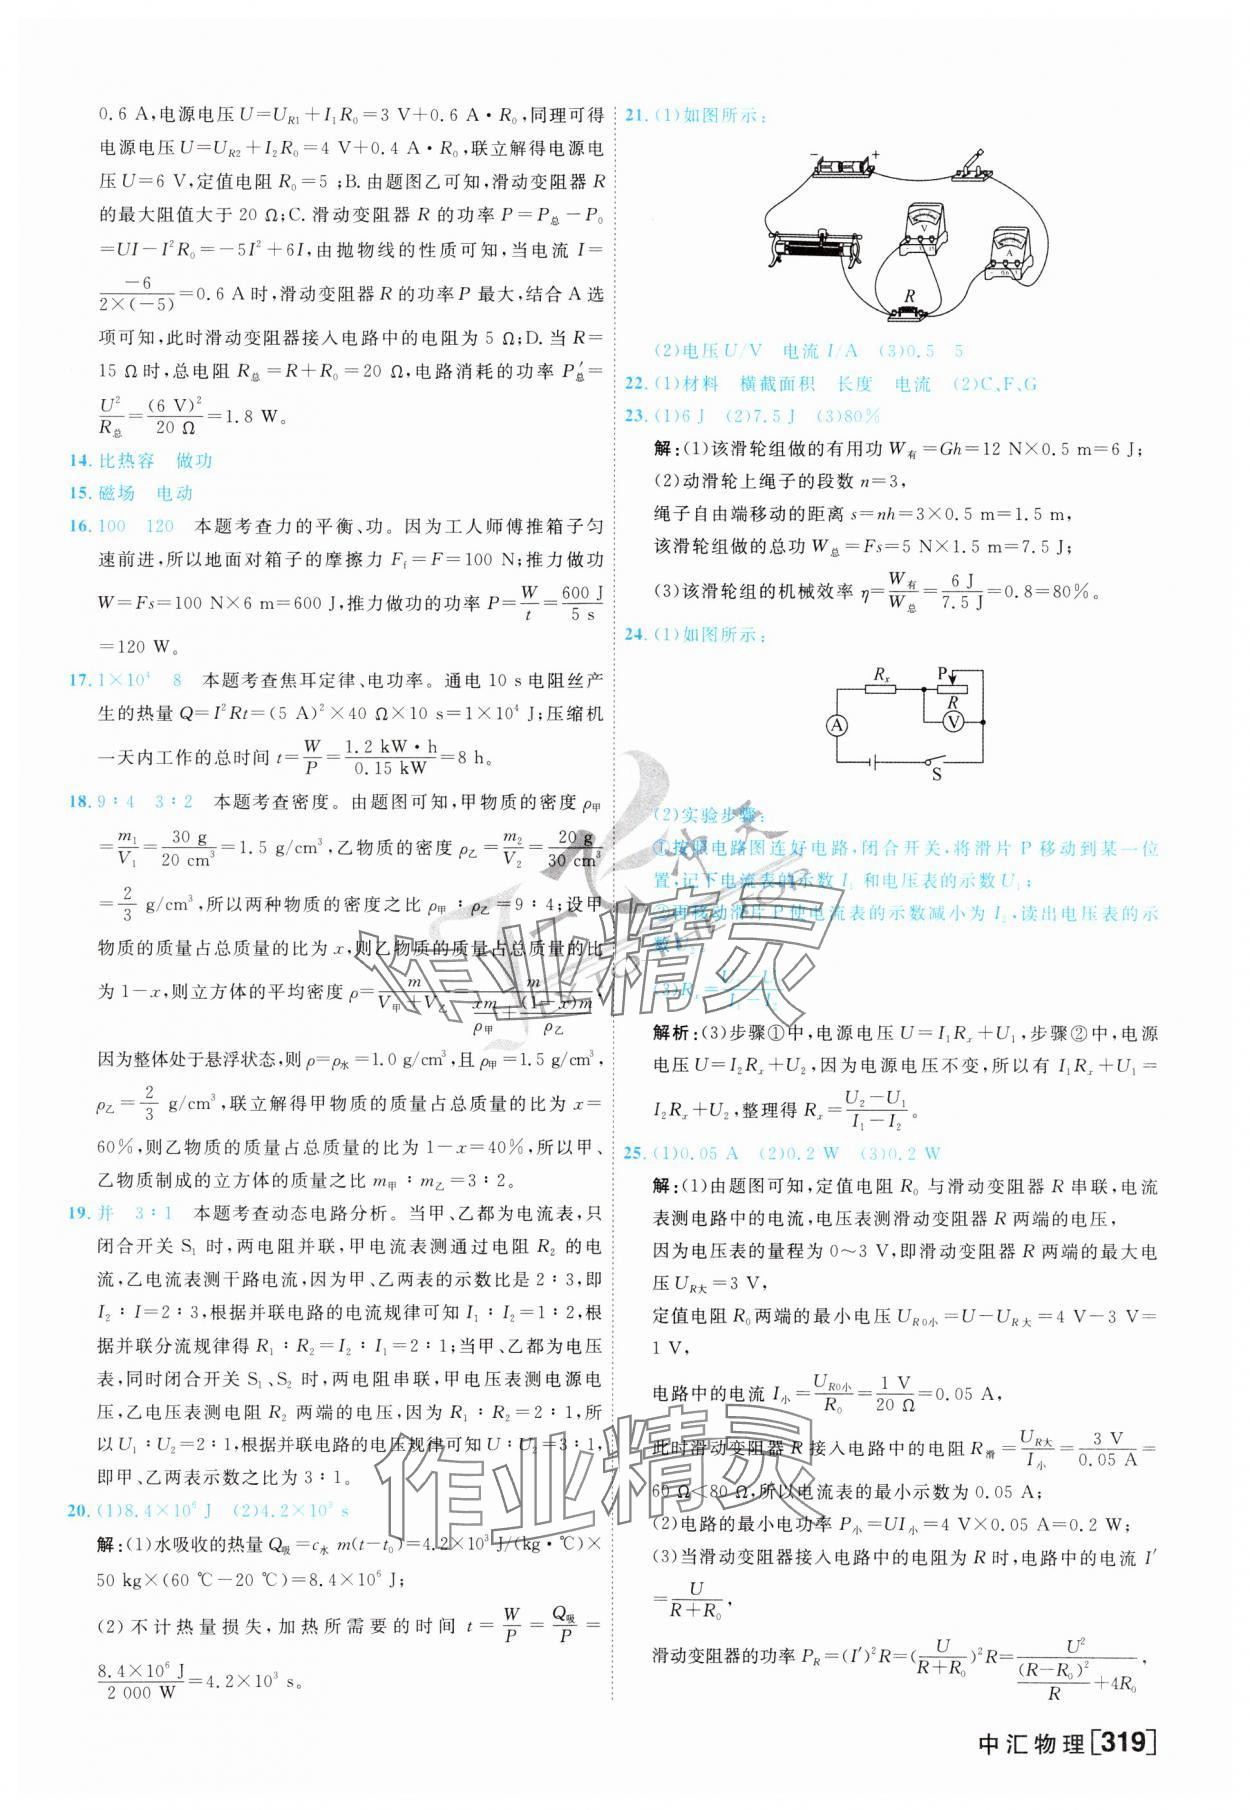 0.6 A,电源电压 U=U_R1+I₁R₀=3 V+0.6 A·R₀,同理可得
电源电压 U=U_R2+I₂R₀=4 V+0.4 A·R₀,联立解得电源电
压 U=6 V,定值电阻 R₀=5 ;B.由题图乙可知,滑动变阻器 R
的最大阻值大于 20 Ω;C.滑动变阻器 R 的功率 P=P总-P₀
=UI-I²R₀=-5I²+6I,由抛物线的性质可知,当电流 I=
-6/(2×(-5))=0.6 A 时,滑动变阻器 R 的功率 P 最大,结合 A 选
项可知,此时滑动变阻器接入电路中的电阻为 5 Ω;D.当 R=
15 Ω 时,总电阻 R总=R+R₀=20 Ω,电路消耗的功率 P′总=
U²/R总=(6 V)²/20 Ω=1.8 W。
14. 比热容 做功
15. 磁场 电动
16. 100 120 本题考查力的平衡、功。因为工人师傅推箱子匀
速前进,所以地面对箱子的摩擦力 F_f=F=100 N;推力做功
W=Fs=100 N×6 m=600 J,推力做功的功率 P=W/t=600 J/5 s
=120 W。
17. 1×10⁴ 8 本题考查焦耳定律、电功率。通电 10 s 电阻丝产
生的热量 Q=I²Rt=(5 A)²×40 Ω×10 s=1×10⁴ J;压缩机
一天内工作的总时间 t=W/P=1.2 kW·h/0.15 kW=8 h。
18. 9∶4 3∶2 本题考查密度。由题图可知,甲物质的密度 ρ甲
=m₁/V₁=30 g/20 cm³=1.5 g/cm³,乙物质的密度 ρ乙=m₂/V₂=20 g/30 cm³
=2/3 g/cm³,所以两种物质的密度之比 ρ甲∶ρ乙=9∶4;设甲
物质的质量占总质量的比为 x,则乙物质的质量占总质量的比
为 1-x,则立方体的平均密度 ρ=m/(V甲+V乙)=m/(xm/ρ甲+(1-x)m/ρ乙),
因为整体处于悬浮状态,则 ρ=ρ水=1.0 g/cm³,且 ρ甲=1.5 g/cm³,
ρ乙=2/3 g/cm³,联立解得甲物质的质量占总质量的比为 x=
60%,则乙物质的质量占总质量的比为 1-x=40%,所以甲、
乙物质制成的立方体的质量之比 m甲∶m乙=3∶2。
19. 并 3∶1 本题考查动态电路分析。当甲、乙都为电流表,只
闭合开关 S₁ 时,两电阻并联,甲电流表测通过电阻 R₂ 的电
流,乙电流表测干路电流,因为甲、乙两表的示数比是 2∶3,即
I₂∶I=2∶3,根据并联电路的电流规律可知 I₁∶I₂=1∶2,根
据并联分流规律得 R₁∶R₂=I₂∶I₁=2∶1;当甲、乙都为电压
表,同时闭合开关 S₁、S₂ 时,两电阻串联,甲电压表测电源电
压,乙电压表测电阻 R₂ 两端的电压,因为 R₁∶R₂=2∶1,所
以 U₁∶U₂=2∶1,根据串联电路的电压规律可知 U∶U₂=3∶1,
即甲、乙两表示数之比为 3∶1。
20. (1)8.4×10⁶ J (2)4.2×10³ s
解:(1)水吸收的热量 Q吸=c水 m(t-t₀)=4.2×10³ J/(kg·℃)×
50 kg×(60 ℃-20 ℃)=8.4×10⁶ J;
(2)不计热量损失,加热所需要的时间 t=W/P=Q吸/P=
8.4×10⁶ J/2 000 W=4.2×10³ s。
21. (1)如图所示:
- +
V
A
R
(2)电压 U/V 电流 I/A (3)0.5 5
22. (1)材料 横截面积 长度 电流 (2)C、F、G
23. (1)6 J (2)7.5 J (3)80%
解:(1)该滑轮组做的有用功 W有=Gh=12 N×0.5 m=6 J;
(2)动滑轮上绳子的段数 n=3,
绳子自由端移动的距离 s=nh=3×0.5 m=1.5 m,
该滑轮组做的总功 W总=Fs=5 N×1.5 m=7.5 J;
(3)该滑轮组的机械效率 η=W有/W总=6 J/7.5 J=0.8=80%。
24. (1)如图所示:
Rₓ P
R
A V
S
(2)实验步骤:
①按照电路图连好电路,闭合开关,将滑片 P 移动到某一位
置,记下电流表的示数 I₁ 和电压表的示数 U₁;
②再移动滑片 P 使电流表的示数减小为 I₂,读出电压表的示
数 U₂。
(3)Rₓ=(U₂-U₁)/(I₁-I₂)
解析:(3)步骤①中,电源电压 U=I₁Rₓ+U₁,步骤②中,电源
电压 U=I₂Rₓ+U₂,因为电源电压不变,所以有 I₁Rₓ+U₁=
I₂Rₓ+U₂,整理得 Rₓ=(U₂-U₁)/(I₁-I₂)。
25. (1)0.05 A (2)0.2 W (3)0.2 W
解:(1)由题图可知,定值电阻 R₀ 与滑动变阻器 R 串联,电流
表测电路中的电流,电压表测滑动变阻器 R 两端的电压,
因为电压表的量程为 0～3 V,即滑动变阻器 R 两端的最大电
压 U_R大=3 V,
定值电阻 R₀ 两端的最小电压 U_R0小=U-U_R大=4 V-3 V=
1 V,
电路中的电流 I小=U_R0小/R₀=1 V/20 Ω=0.05 A,
此时滑动变阻器 R 接入电路中的电阻 R滑=U_R大/I小=3 V/0.05 A=
60 Ω<80 Ω,所以电流表的最小示数为 0.05 A;
(2)电路的最小电功率 P小=UI小=4 V×0.05 A=0.2 W;
(3)当滑动变阻器接入电路中的电阻为 R 时,电路中的电流 I′
=U/(R+R₀),
滑动变阻器的功率 P_R=(I′)²R=(U/(R+R₀))²R=U²/((R-R₀)²/R+4R₀),
中汇物理[319]
作业精灵
作业精灵